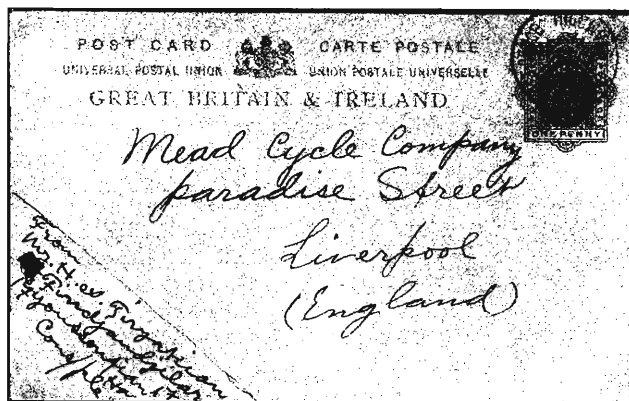 POST CARD CARTE POSTALE
UNIVERSAL POSTAL UNION UNION POSTALE UNIVERSELLE
GREAT BRITAIN & IRELAND
ONE PENNY
Mead Cycle Company
paradise Street
Liverpool
(England)
From
Mr. H.